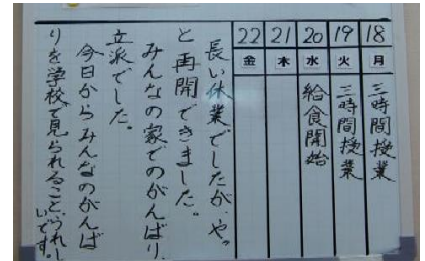 18 月 三時間授業
19 火 三時間授業
20 水 給食開始
21 木
22 金
長い休業でしたが、やっ
と再開できました。
みんなの家でのがんばり、
立派でした。
今日から、みんなのがんば
りを学校で見られること、うれし
いです。